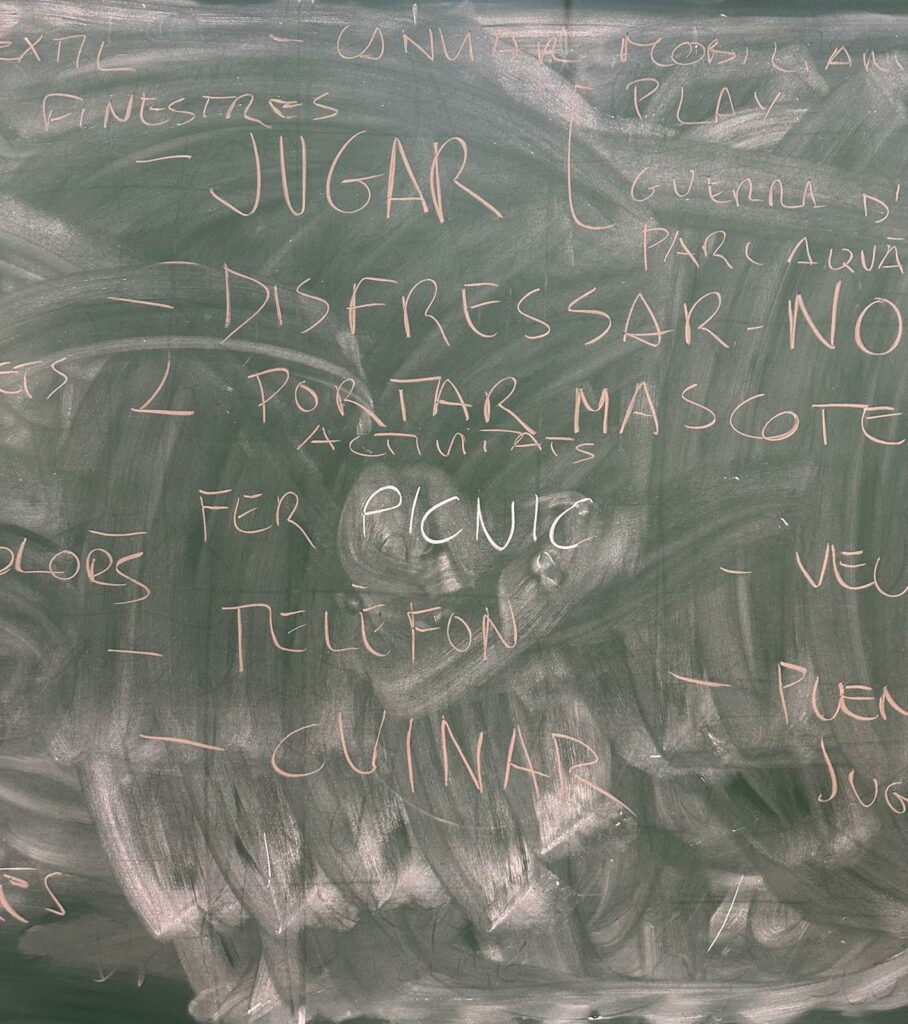 EXTIL - CANVIAR MOBILIARI
FINESTRES - PLAY
- JUGAR
GUERRA D'
PARC AQUÀ
- DISFRESSAR-NO
ETS
L PORTAR MASCOTE
ACTIVITATS
FER PICNIC
OLORS
- VEU
- TELÈFON
- PLEN
- CUINAR
JUG